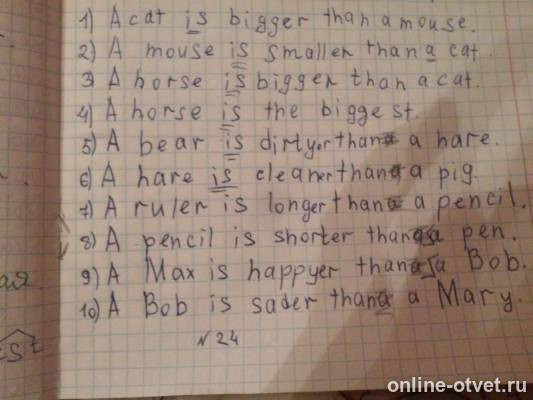 1) A cat is bigger than a mouse.
2) A mouse is smaller than a cat.
3) A horse is bigger than a cat.
4) A horse is the biggest.
5) A bear is dirtyer than a hare.
6) A hare is cleaner than a pig.
7) A ruler is longer than a pencil.
8) A pencil is shorter than a pen.
9) A Max is happyer than a Bob.
10) A Bob is sader than a Mary.
№ 24
ая.
est
online-otvet.ru